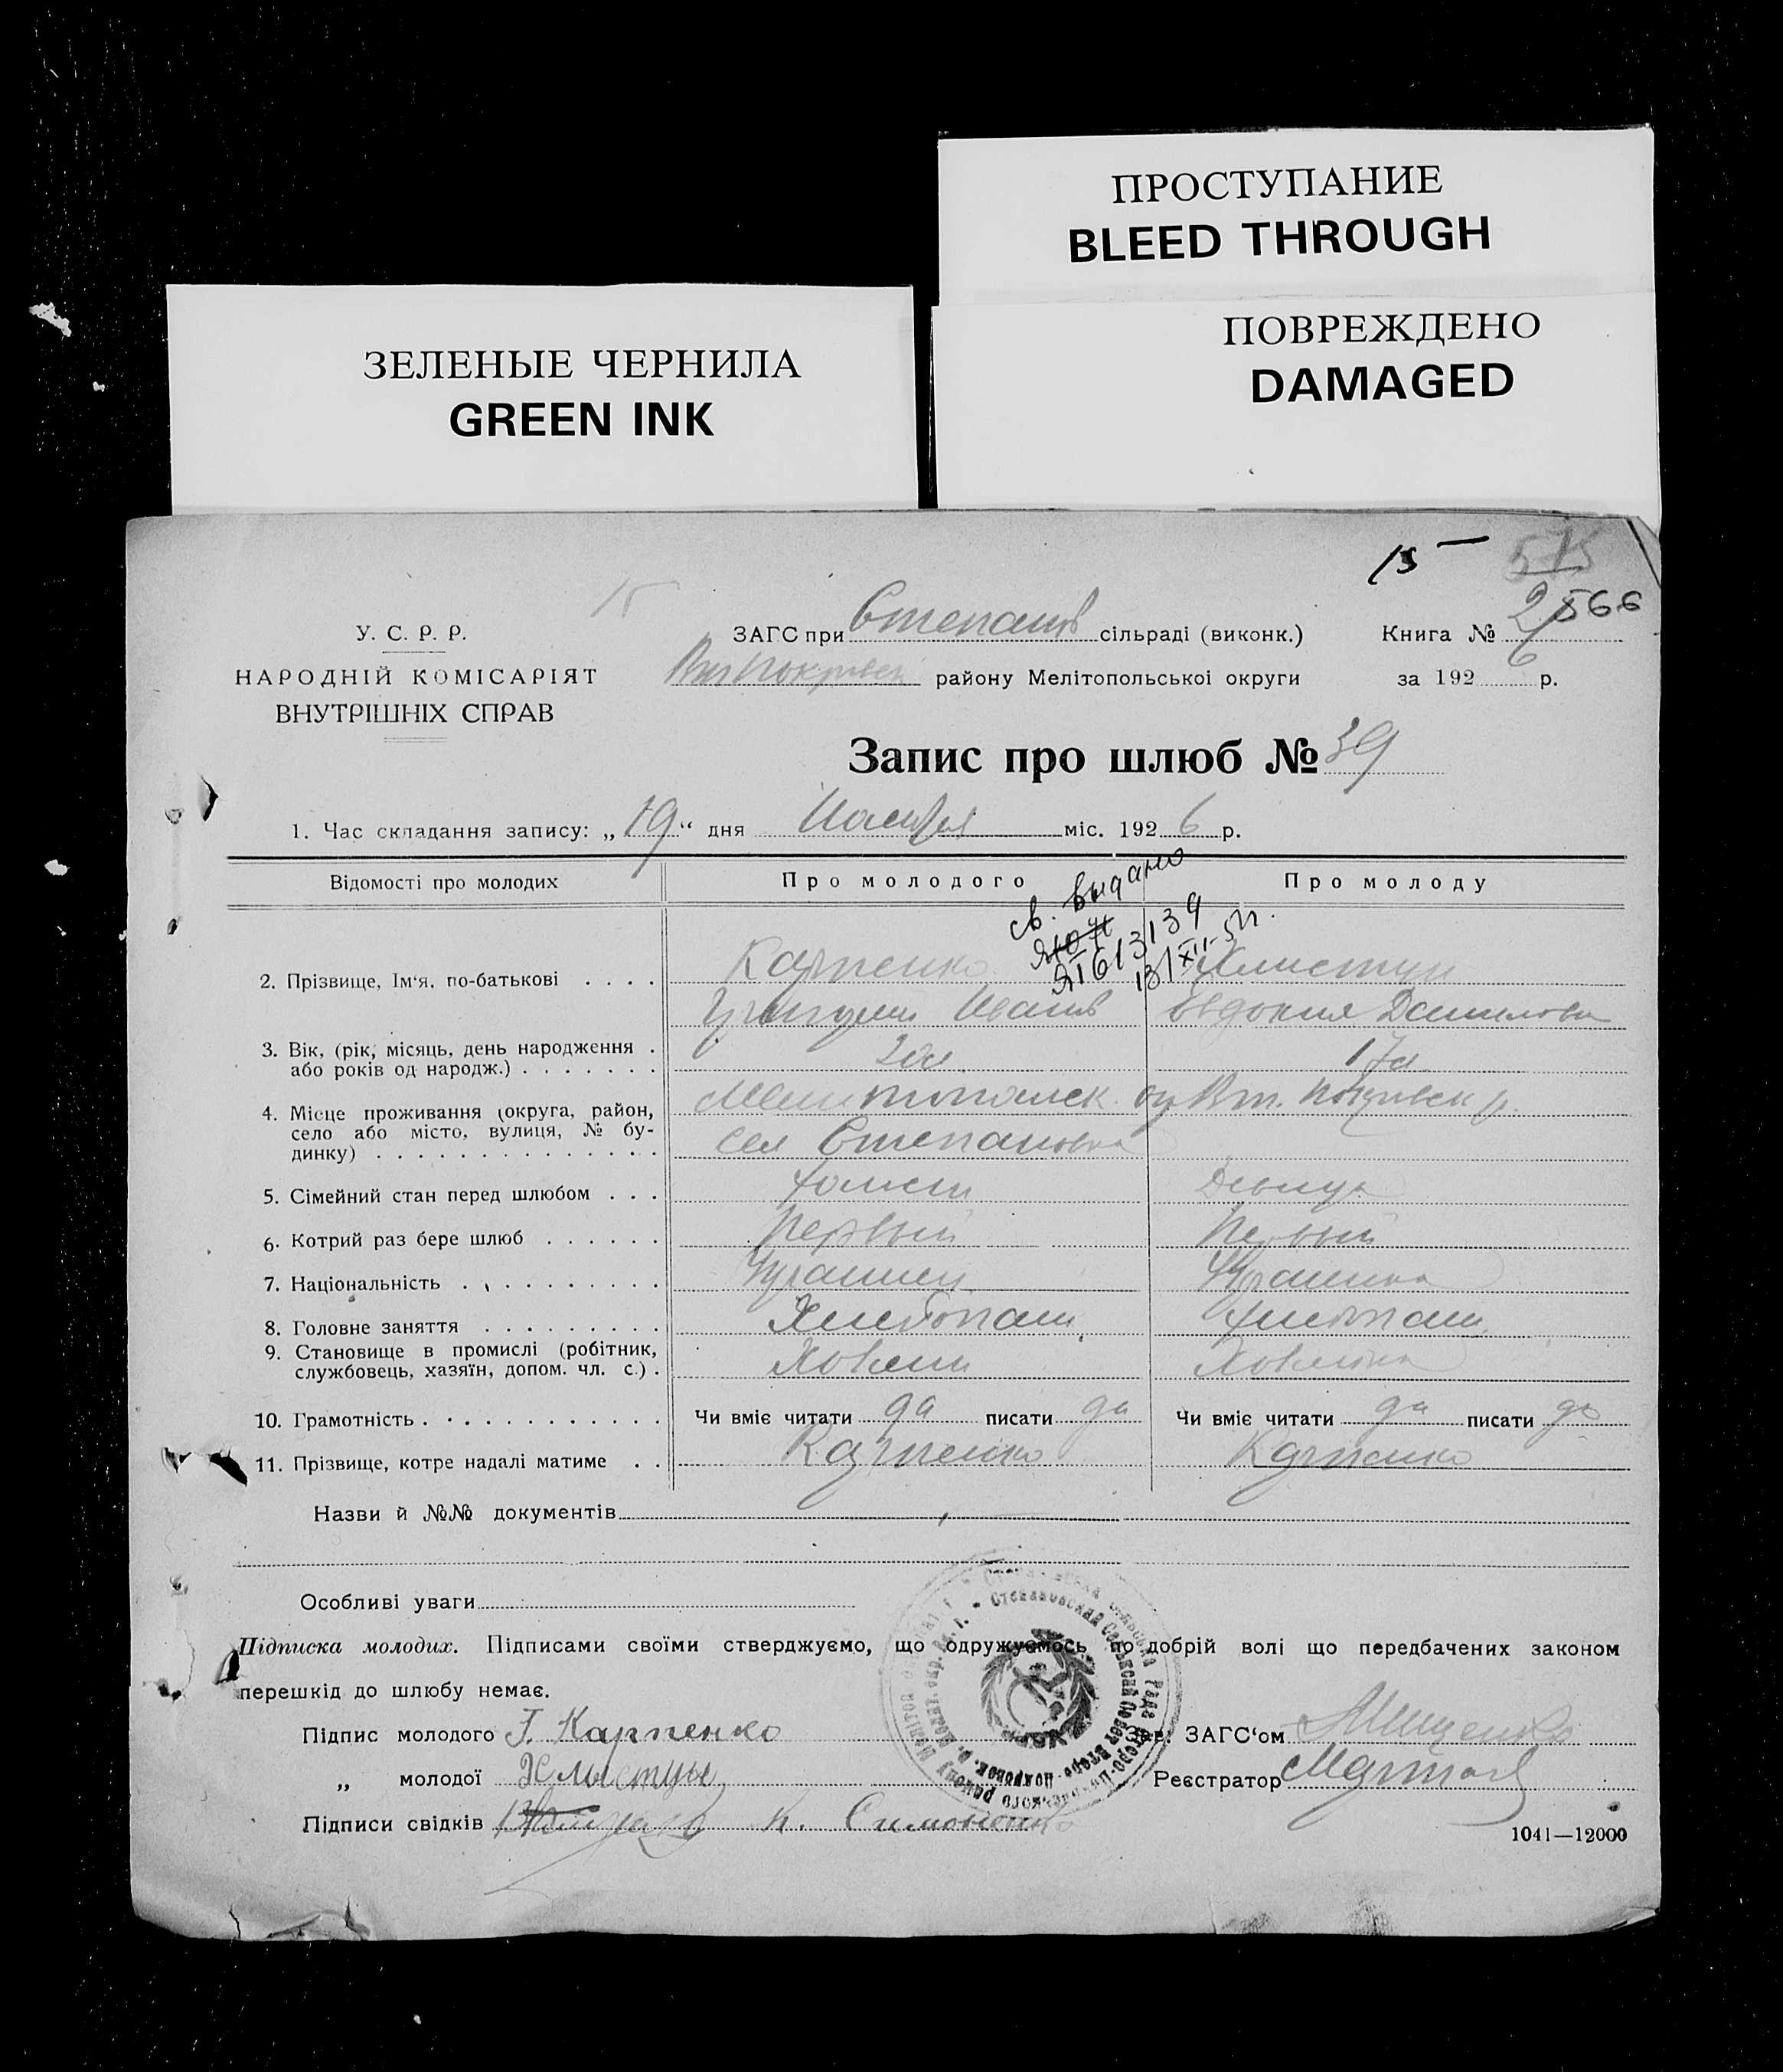 ПРОСТУПАНИЕ
BLEED THROUGH
ПОВРЕЖДЕНО
DAMAGED
ЗЕЛЕНЫЕ ЧЕРНИЛА
GREEN INK
15 — 575
15
У. С. Р. Р.
НАРОДНІЙ КОМІСАРІЯТ
ВНУТРІШНІХ СПРАВ
ЗАГС при Степанів сільраді (виконк.) Книга № 2 566
району Мелітопольської округи за 1926 р.
Запис про шлюб № 39
1. Час складання запису: „19“ дня міс. 1926 р.
Відомості про молодих Про молодого Про молоду
св. выдано
ЯІ 613139
13/XII-51г.
2. Прізвище, Ім‘я, по-батькові . . . . Карпенко Хлистун
Григорий Иванов Евдокия Данилова
3. Вік, (рік, місяць, день народження . або років од народж.) . . . . . . . 20л 17л
4. Місце проживання (округа, район, село або місто, вулиця, № будинку) . . . . . . . . . . . . . . Мелитопольск. ок Вт. Покровск р.
сел Степановка
5. Сімейний стан перед шлюбом . . . Холост Девица
6. Котрий раз бере шлюб . . . . . . Первый Первый
7. Національність . . . . . . . . . . Украинец Украинка
8. Головне заняття . . . . . . . . . Хлебопаш. Хлебопаш.
9. Становище в промислі (робітник, службовець, хазяїн, допом. чл. с.) .
10. Грамотність . . . . . . . . . . . . Чи вміє читати да писати да Чи вміє читати да писати да
11. Прізвище, котре надалі матиме . . Карпенко Карпенко
Назви й №№ документів
Особливі уваги
Підписка молодих. Підписами своїми стверджуємо, що одружуємось по добрій волі що передбачених законом
перешкід до шлюбу немає.
Підпис молодого Г. Карпенко ЗАГС‘ом Мищенко
„ молодої Хлыстун Реєстратор
Підписи свідків К. Симоненко
1041—12000